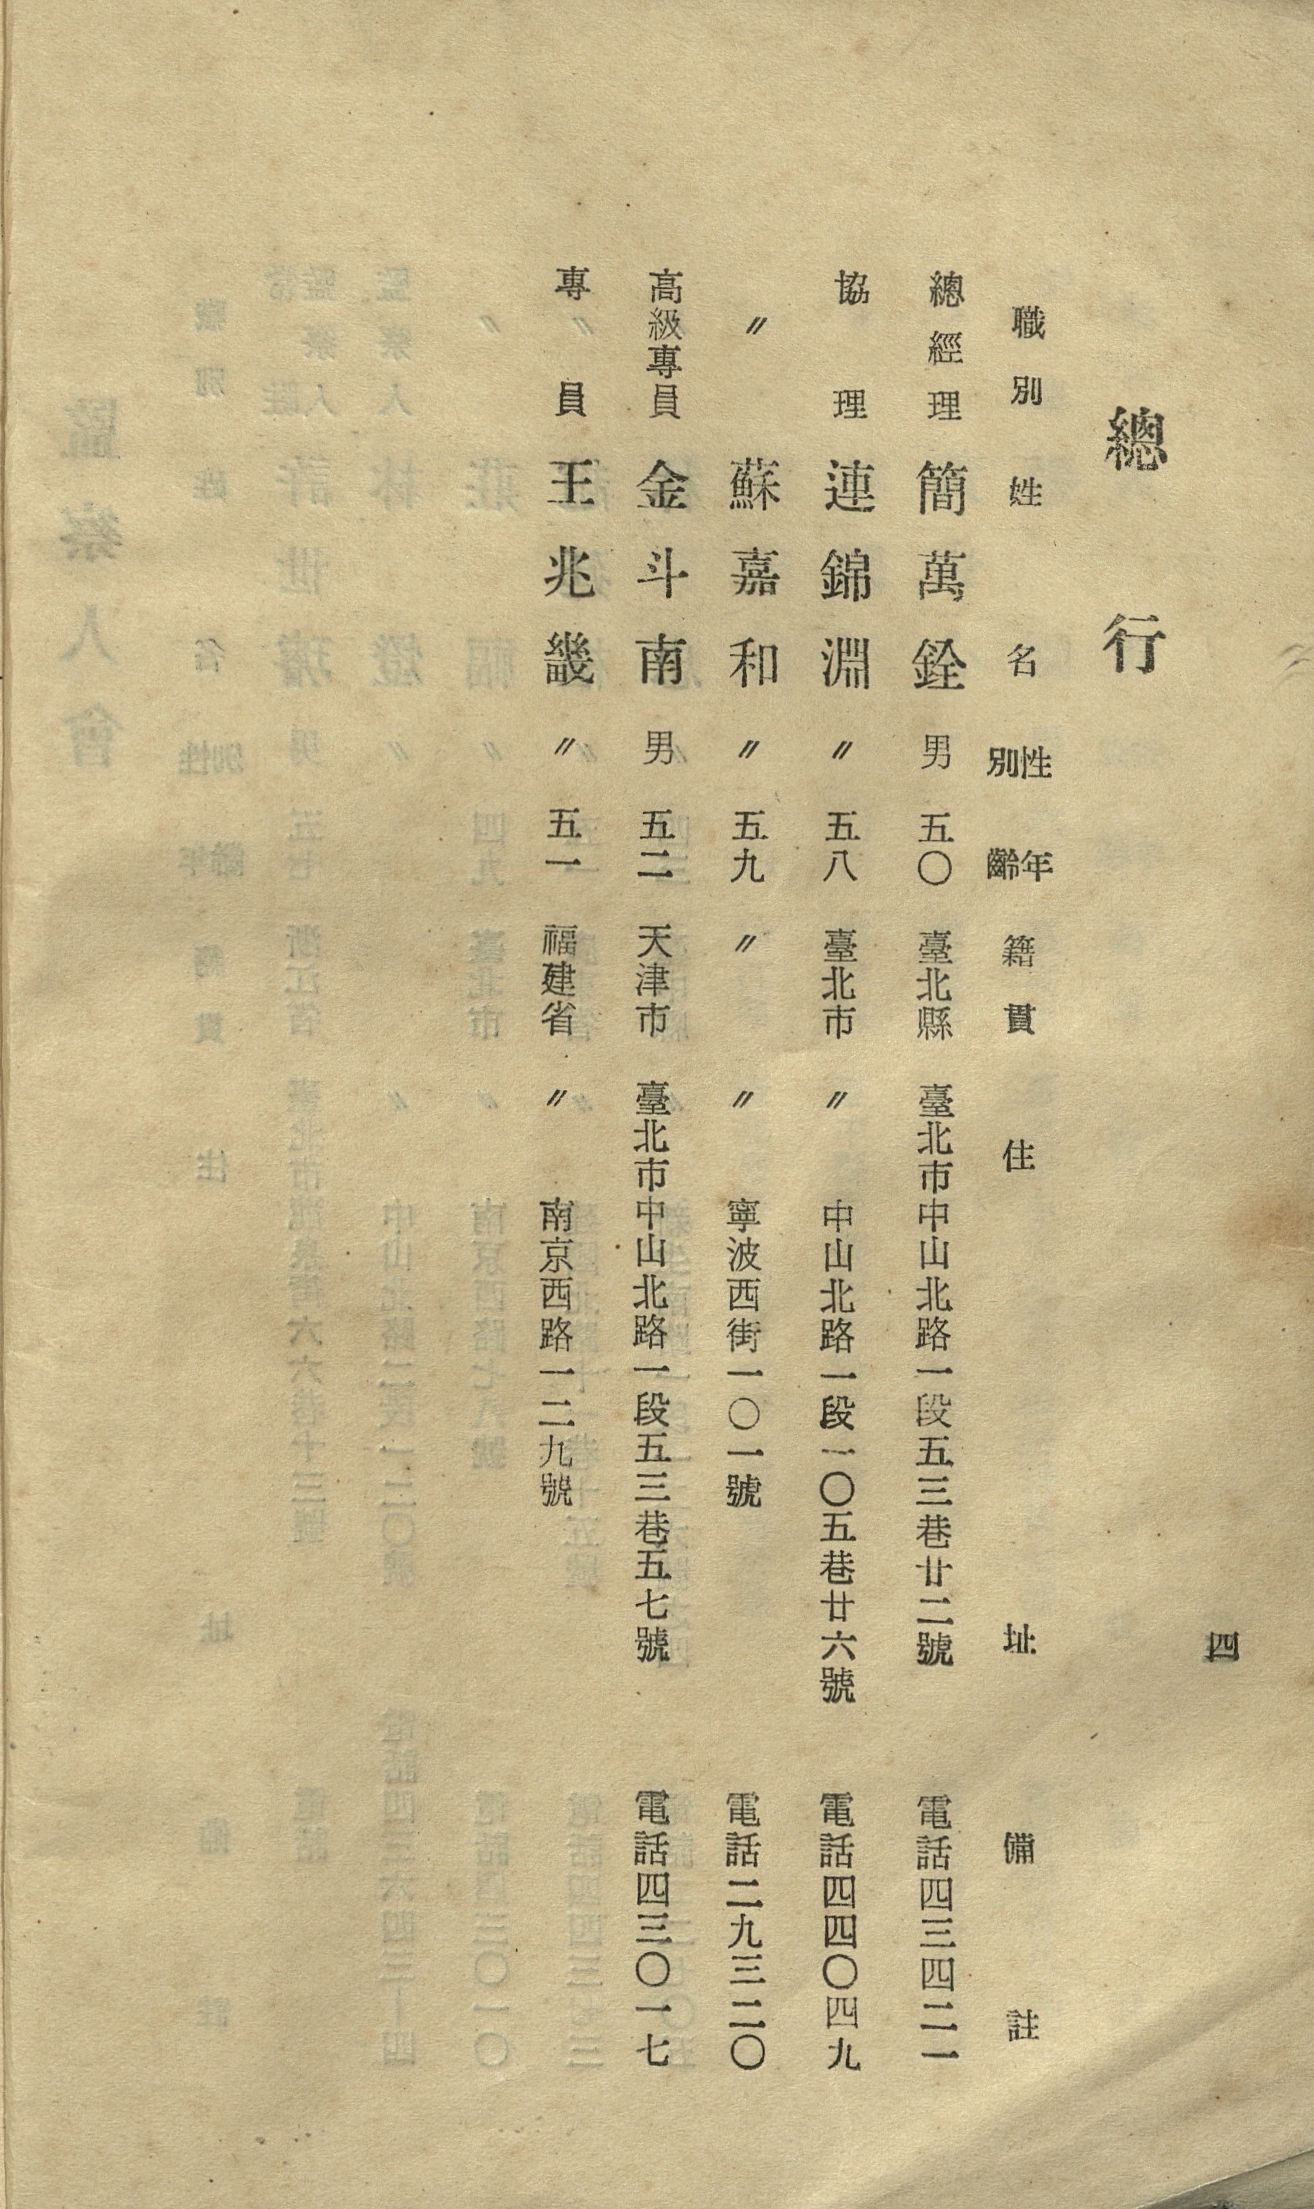 四
總行
職別 姓名 性別 年齡 籍貫 住址 備註
總經理 簡萬銓 男 五〇 臺北縣 臺北市中山北路一段五三巷廿二號 電話四三四二一
協理 連錦淵 〃 五八 臺北市 〃 中山北路一段一〇五巷廿六號 電話四四〇四九
〃 蘇嘉和 〃 五九 〃 〃 寧波西街一〇一號 電話二九三二〇
高級專員 金斗南 男 五二 天津市 臺北市中山北路一段五三巷五七號 電話四三〇一七
專員 王兆畿 〃 五一 福建省 〃 南京西路一二九號